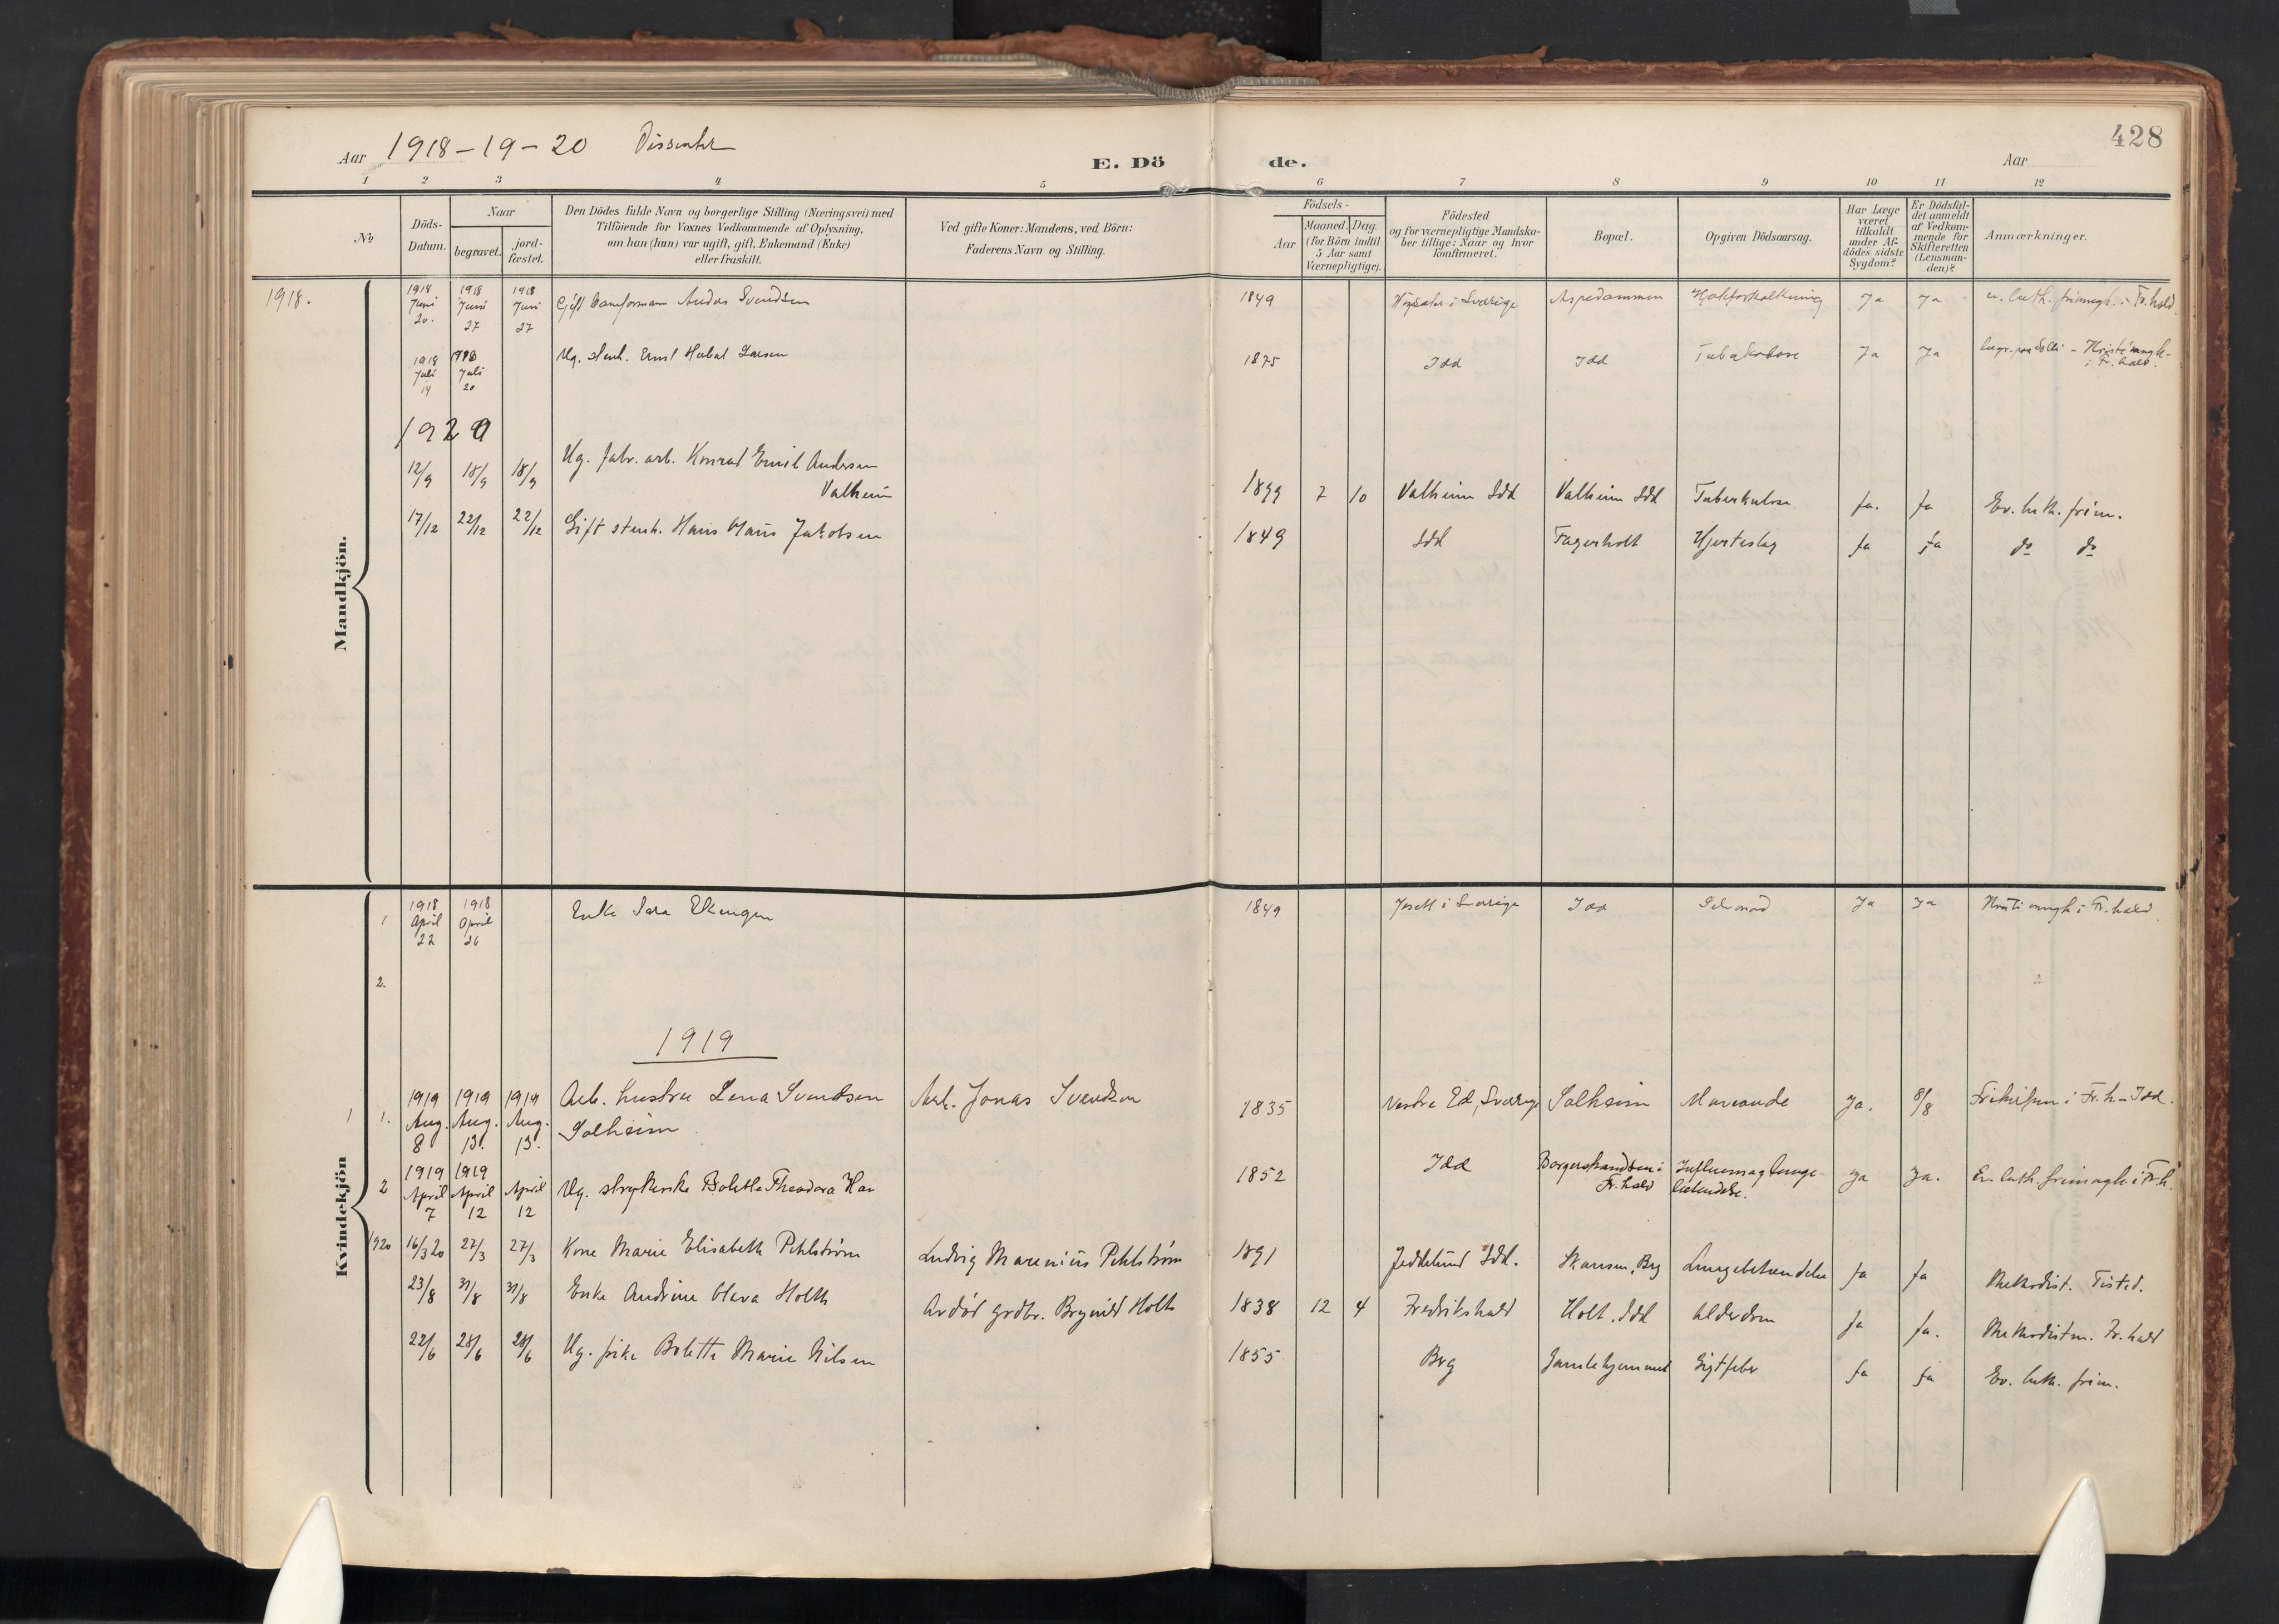 428
Aar 1918-19-20 Dissenter
E. Dö de.
Aar
1 2 3 4 5 6 7 8 9 10 11 12
No
Döds-Datum.
Naar
begravet.
jord-fæstet.
Den Dödes fulde Navn og borgerlige Stilling (Næringsvei) med
Tilföiende for Voxnes Vedkommende af Oplysning,
om han (hun) var ugift, gift, Enkemand (Enke)
eller fraskilt.
Ved gifte Koner: Mandens, ved Börn:
Faderens Navn og Stilling.
Födsels-
Aar
Maaned. Dag.
(for Börn indtil
5 Aar samt
Værnepligtige).
Födested
og for værnepligtige Mandska-
ber tillige: Naar og hvor
konfirmeret.
Bopæl.
Opgiven Dödsaarsag.
Har Læge
været
tilkaldt
under Af-
dödes sidste
Sygdom?
Er Dödsfal-
det anmeldt
af Vedkom-
mende for
Skifteretten
(Lensman-
den)?
Anmærkninger.
Mandkjön.
1918.
1918 Juni 20. 1918 Juni 27 1918 Juni 27 Gift Anders Svendsen 1849 i Sverige Aspedammen Ja Ja ev. luth. frimngh. i Fr.hald.
1918 Juli 14 1918 Juli 20 Ug. stenh. Ernst Larsen 1875 Idd Idd Tuberkulose Ja Ja
i Fr.hald.
1920
12/9 18/9 18/9 Ug. fabr. arb. Konrad Emil Andersen
Valheim 1899 7 10 Valheim Idd Valheim Idd Tuberkulose ja. ja Ev. luth. frim.
17/12 22/12 22/12 Gift stenh. Hans Claus Jakobsen 1849 Idd Fagerholt Hjerteslag ja ja do do
Kvindekjön
1 1918 April 22 1918 April 26 Enke Sara 1849 i Sverige Idd Ja Ja i Fr.hald.
2.
1919
1 1. 1919 Aug. 8 1919 Aug. 13. 1919 Aug. 13. Arb. hustru Lena Svendsen
Solheim Arb. Jonas Svendsen 1835 Vestre Ed, Sverige Solheim Ja. 8/8 i Fr.h-Idd.
2 1919 April 7 1919 April 12 April 12 Ug. strykerske Bolette Theodora 1852 Idd Borgerstrandveien i
Fr.hald Influensa og lunge-
betændelse. Ja Ja. Ev. luth. frimngh i Fr.h.
1920 16/3 20 27/3 27/3 Kone Marie Elisabeth Pehlstrøm Ludvig Marenius Pehlstrøm 1891 Jeddelund Idd. Skansen, Brg Lungebetændelse ja ja Methodist. Tisted.
23/8 31/8 31/8 Enke Andrine Olava Holth Avdød grdbr. Brynild Holth 1838 12 4 Fredrikshald Holt. Idd Alderdom ja ja. Methodistm. Fr.hald
22/6 28/6 28/6 Ug. frøken Bolette Marie Nilsen 1855 Brg Gamlehjemmet Gigtfeber ja ja Ev. luth. frim.